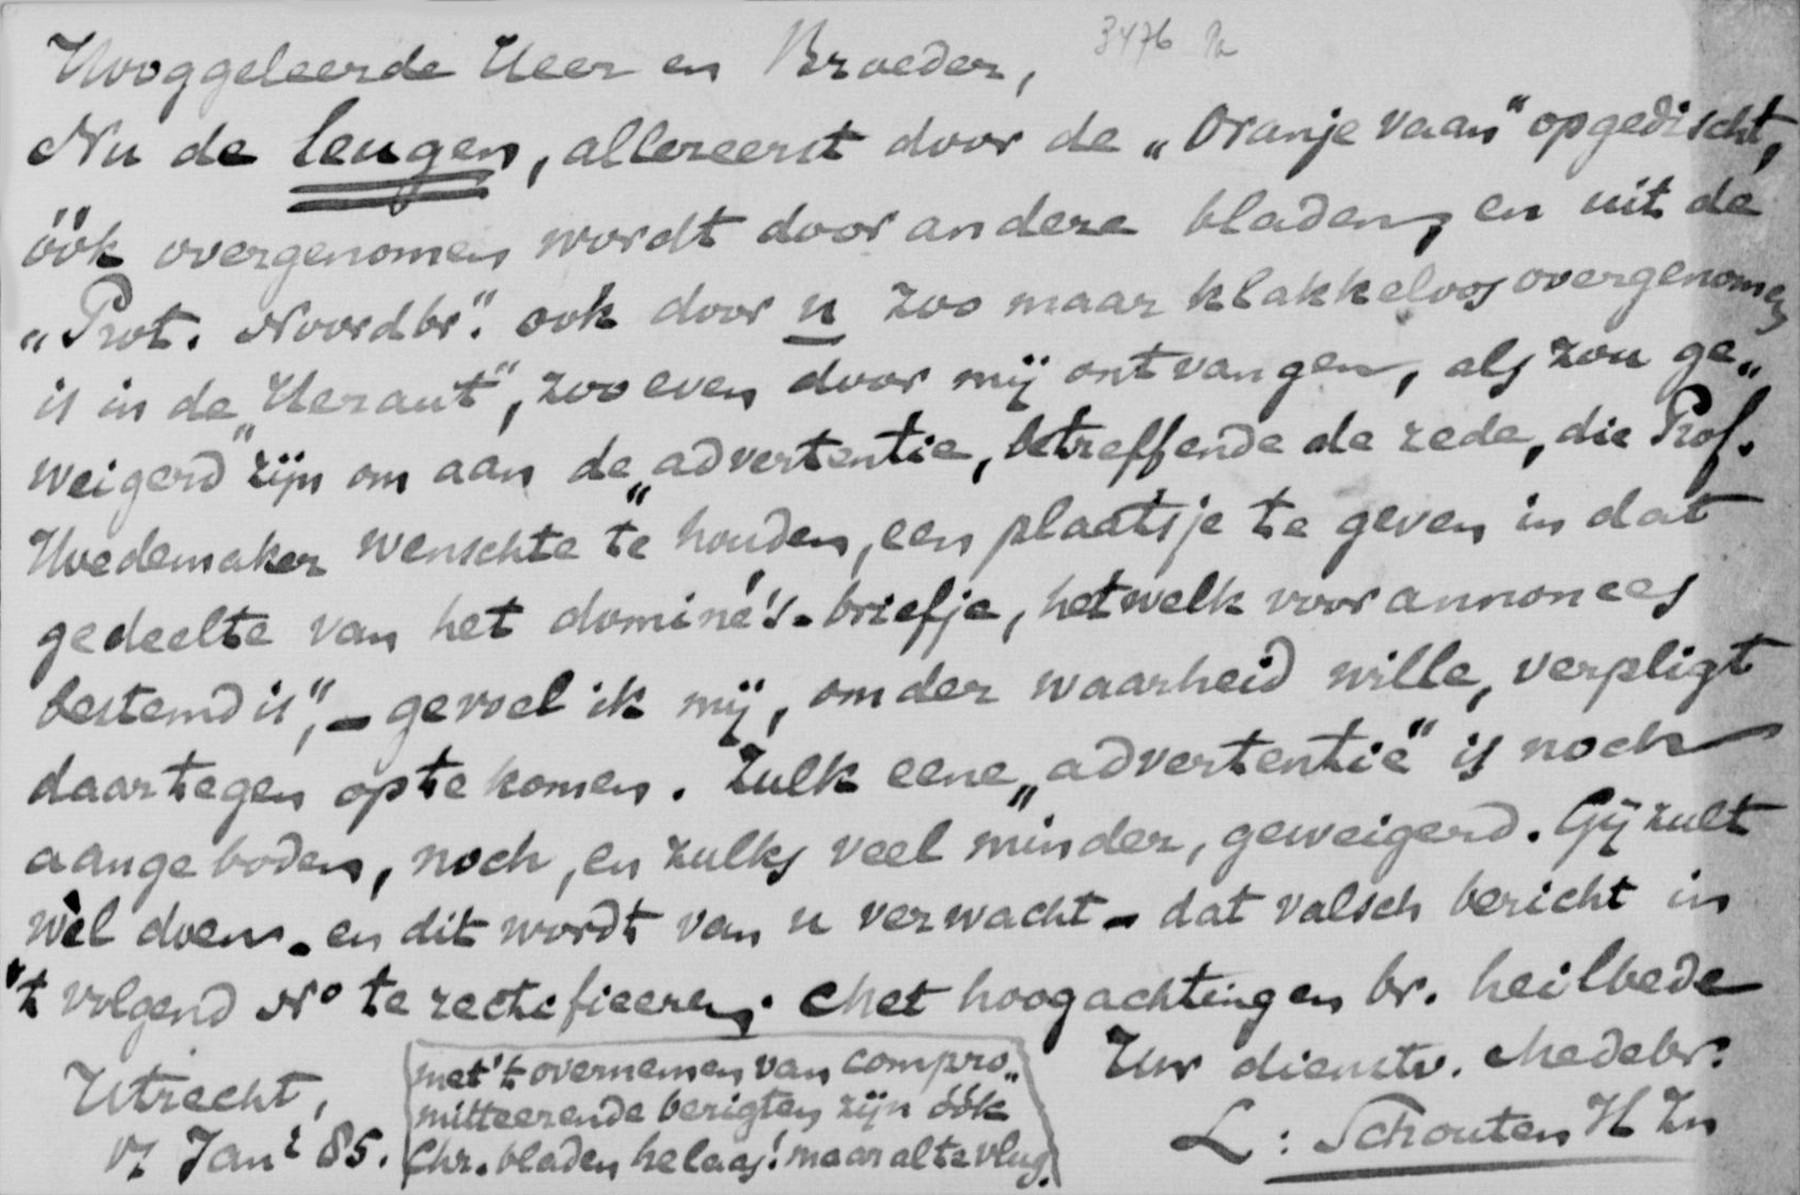 Hooggeleerde Heer en Broeder,
3476
Nu de leugen, allereerst door de „Oranje vaan" opgedischt,
óók overgenomen wordt door andere bladen, en uit de
„Prot. Noordbr." ook door u zoo maar klakkeloos overgenomen
is in de „Heraut", zoo even door mij ontvangen, als zou „ge„
weigerd zijn om aan de „advertentie, betreffende de rede, die Prof.
Hoedemaker wenschte te houden, een plaatsje te geven in dat
gedeelte van het dominé's-briefje, hetwelk voor annonces
bestemd is", – gevoel ik mij, om der waarheid wille, verpligt
daartegen op te komen. Zulk eene „advertentie" is noch
aangeboden, noch, en zulks veel minder, geweigerd. Gij zult
wèl doen – en dit wordt van u verwacht – dat valsch bericht in
't volgend No te rectificeeren. Met hoogachting en br. heilbede
Utrecht,
17 Jani 85.
met 't overnemen van compro„
mitteerende berigten zijn óók
Chr. bladen helaas! maar al te vlug.
Uw dienstv. Medebr.
L: Schouten H Zn